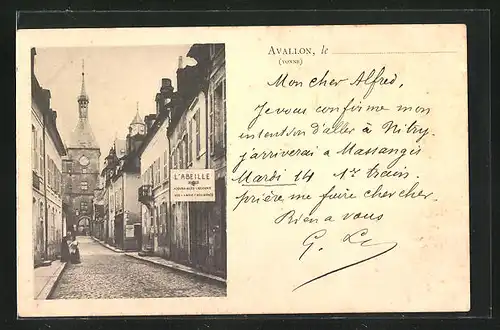 AVALLON, le
(YONNE)
Mon cher Alfred,
Je vous confirme mon
intention d'aller à Nitry
j'arriverai à Massangis
Mardi 14 1er Train.
prière me faire chercher.
Rien a vous
G. Le
L'ABEILLE